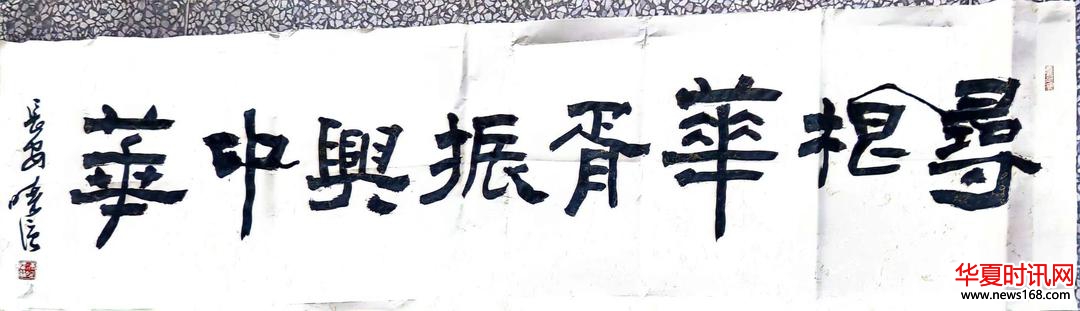 尋根華胥振興中華
長安
曉信
华夏时讯网
www.news168.com